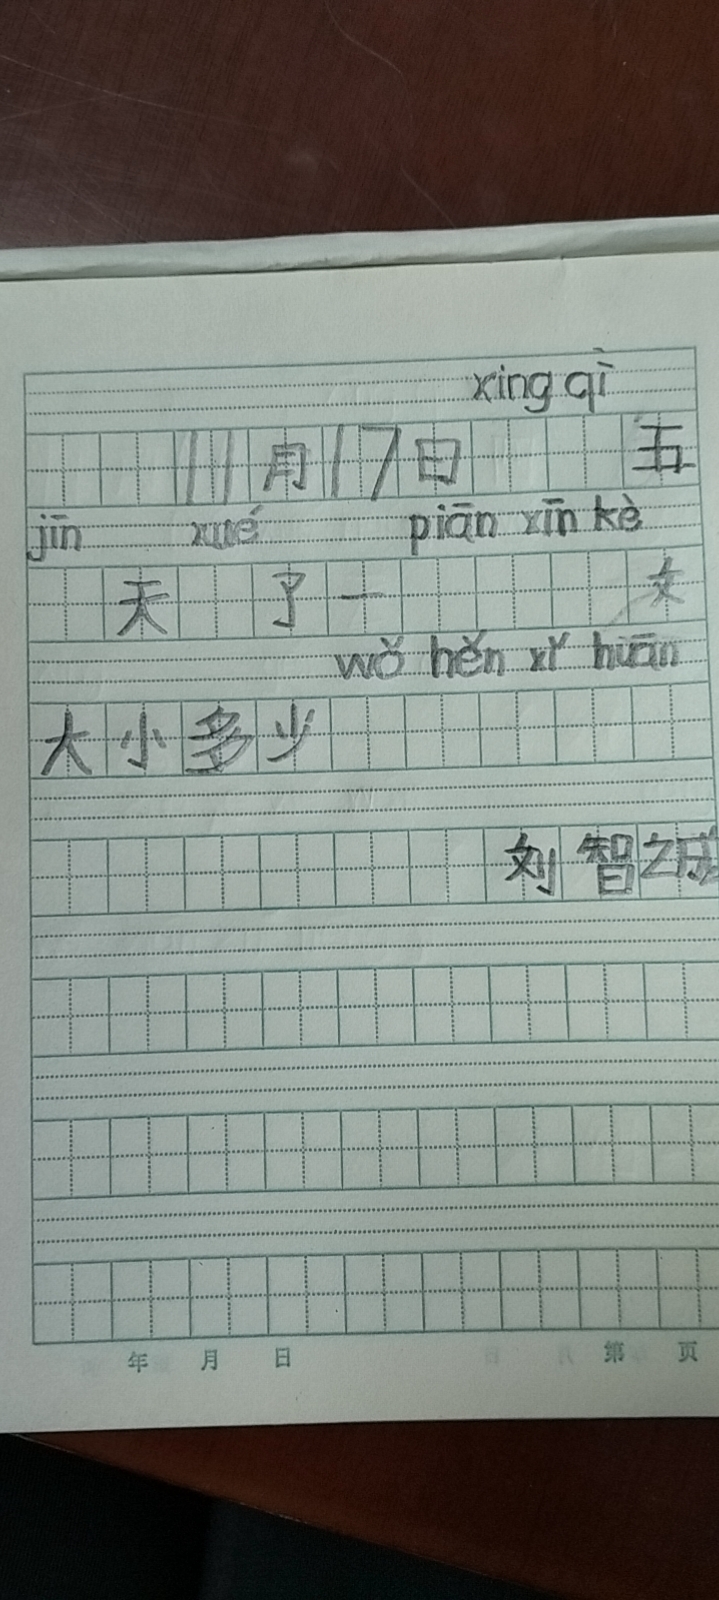 xing qì
11月17日 五
jīn xué piān xīn kè
天 了一 文
wǒ hěn xǐ huān
大小多少
刘智之成
年 月 日 第 页